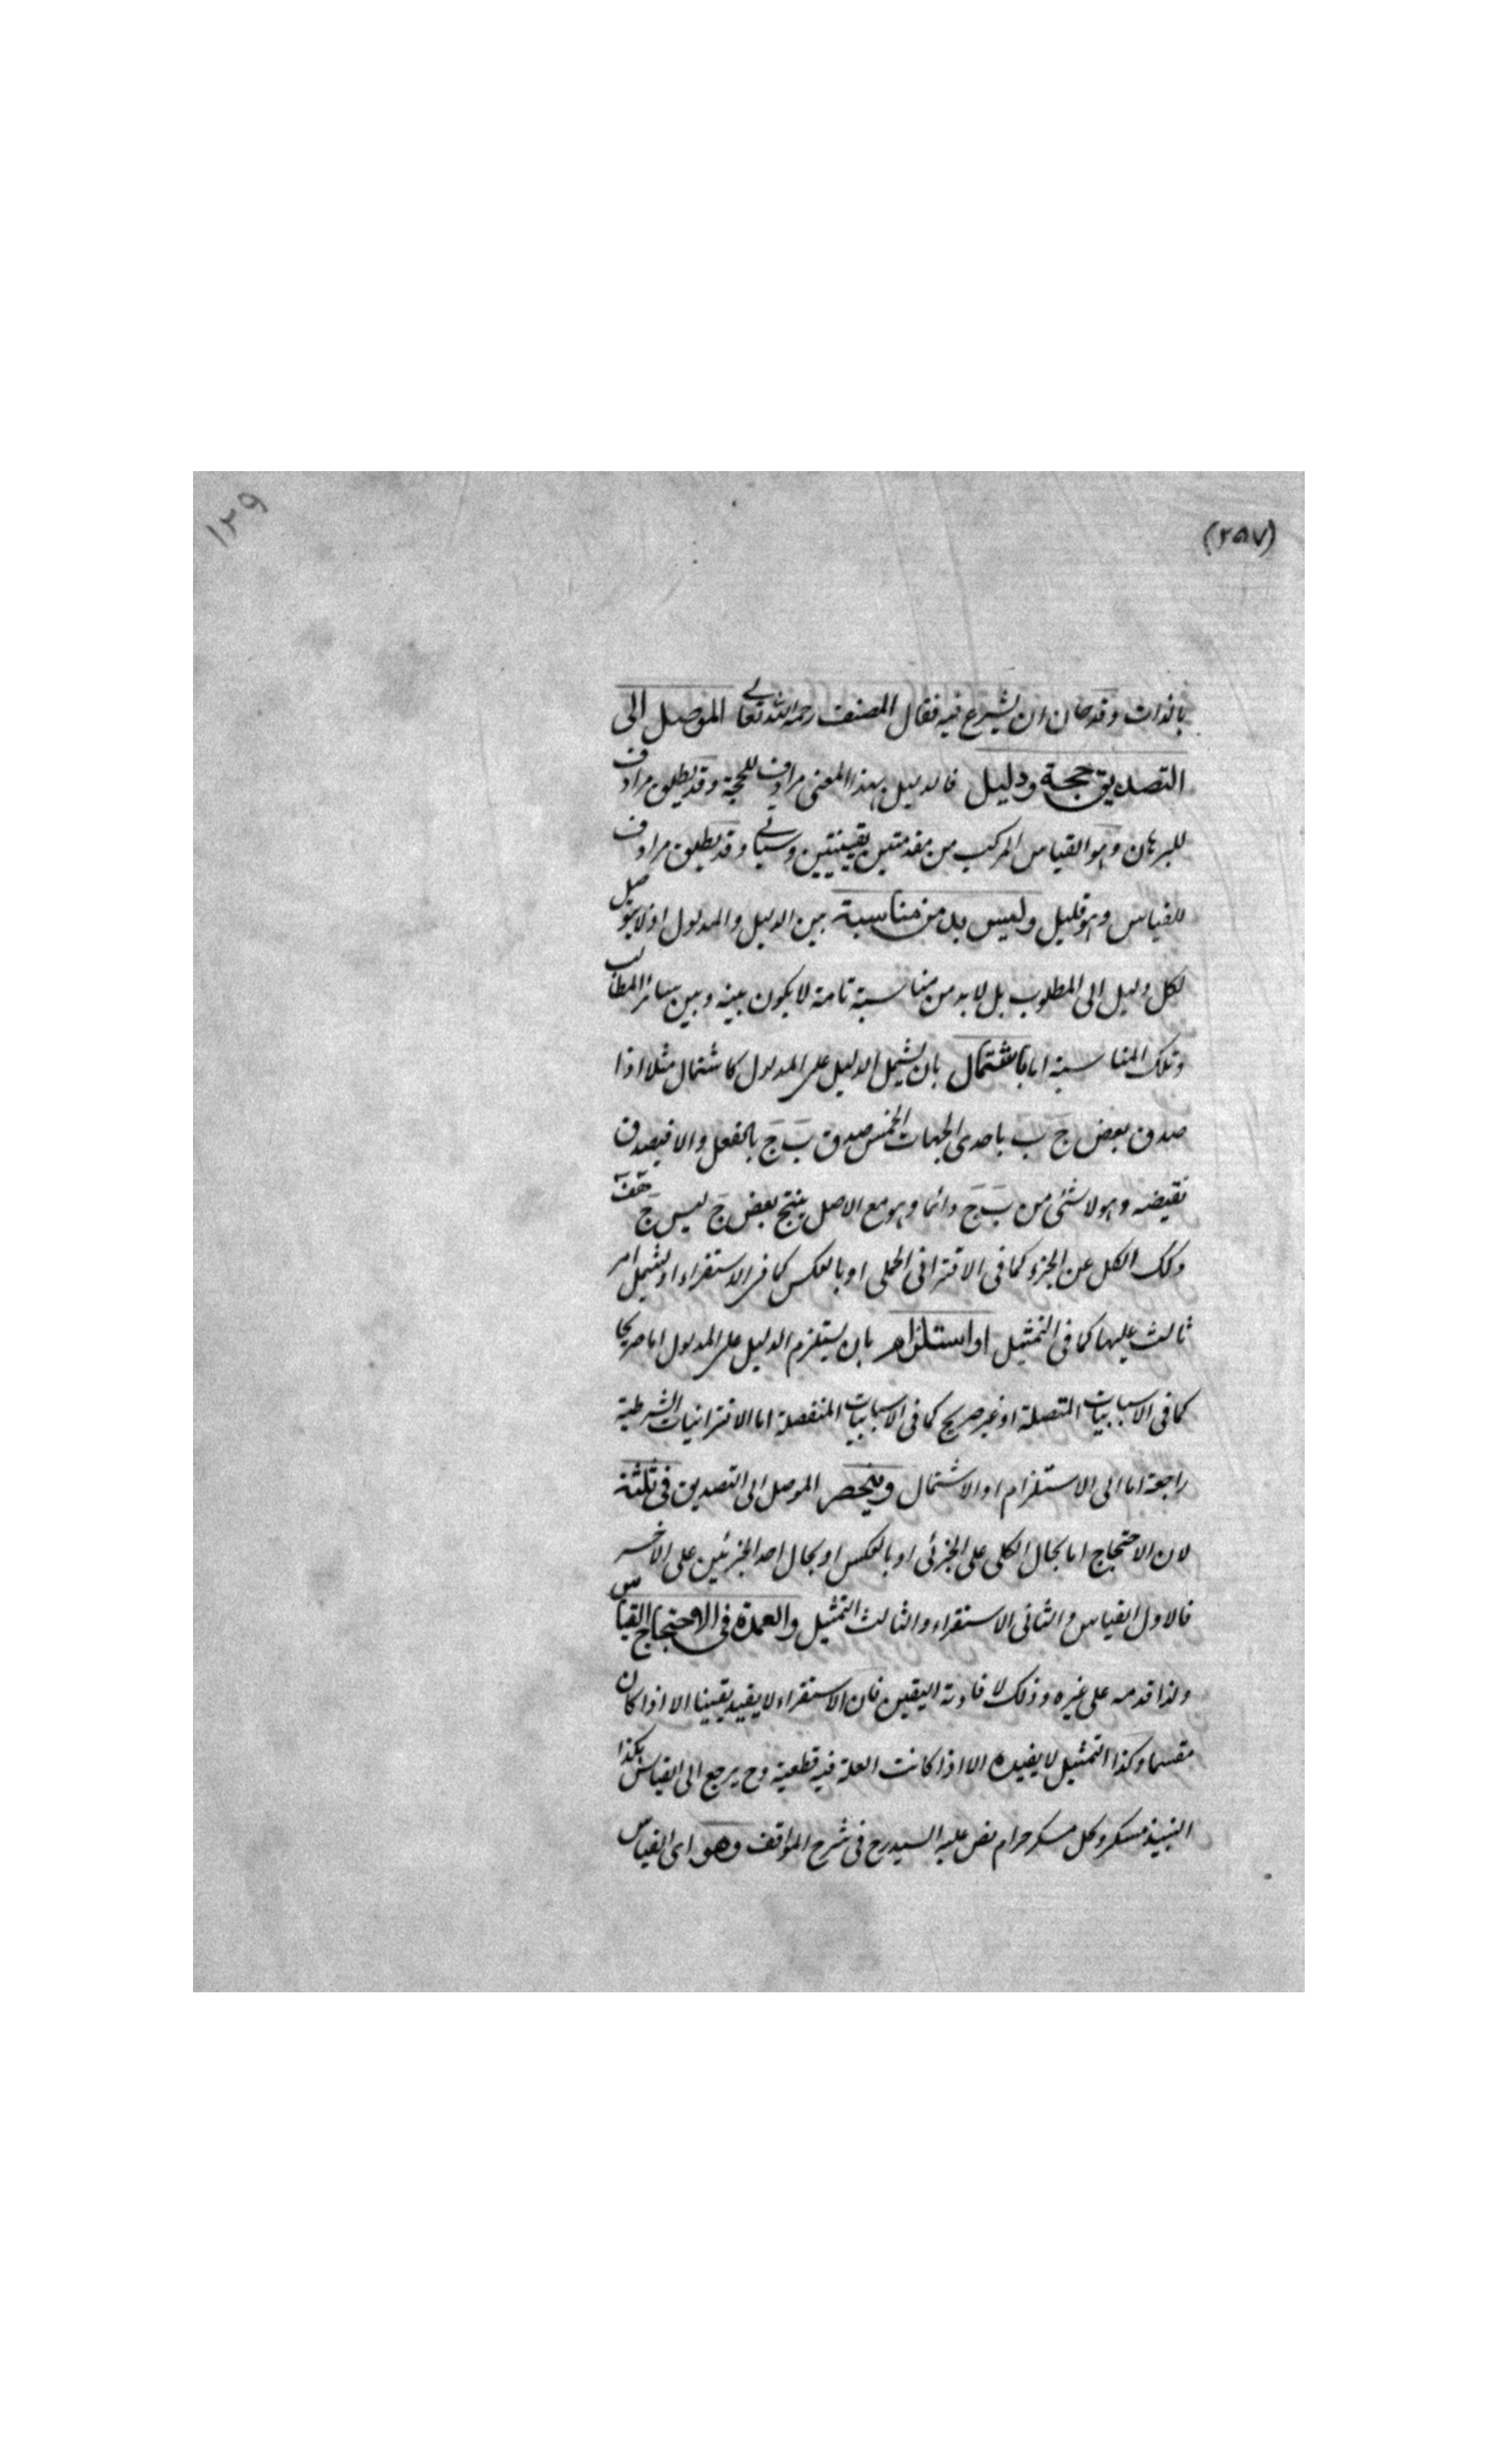 ١٢٩
(٢٥٧)
بالذات وقد حان ان يشرع فيه فقال المصنف رحمه الله تعالى الموصل الى
التصديق حجة ودليل فالدليل بهذا المعنى مرادف للحجة وقد يطلق مرادف
للبرهان وهو القياس المركب من مقدمتين يقينيتين وسياتي وقد يطلق مرادف
للقياس وهو قليل وليس بد من مناسبة بين الدليل والمدلول اذ لا يتوصل
لكل دليل الى المطلوب بل لا بد من مناسبة تامة لا يكون بينه وبين سائر المطالب
وتلك المناسبة اما باشتمال بان يشمل الدليل على المدلول كاشتمال مثلا اذا
صدق بعض ج ب باحدى الجهات الخمس صدق ب ج بالفعل والا فيصدق
نقيضه وهو لا شئ من ب ج دائما وهو مع الاصل ينتج بعض ج ليس ج هف
وكك الكل عن الجزء كما فى الاقترانى الحملى او بالعكس كما فى الاستقراء او يشمل امر
ثالث عليها كما فى التمثيل او استلزام بان يستلزم الدليل على المدلول اما صريحا
كما فى المتصلة او غير صريح كما فى المنفصلة اما الاقترانيات الشرطية
راجعة اما الى الاستلزام او الاشتمال وينحصر الموصل الى التصديق فى ثلثة
لان الاحتجاج اما بحال الكلى على الجزئى او بالعكس او بحال احد الجزئين على الاخر
فالاول القياس والثانى الاستقراء والثالث التمثيل والعمدة فى الاحتجاج القياس
ولذا قدمه على غيره وذلك لافادته اليقين فان الاستقراء لا يفيد يقينا الا اذا كان
مقسما وكذا التمثيل لا يفيده الا اذا كانت العلة فيه قطعية وح يرجع الى القياس هكذا
النبيذ مسكر وكل مسكر حرام نص عليه السيد رح فى شرح المواقف وهو اى القياس